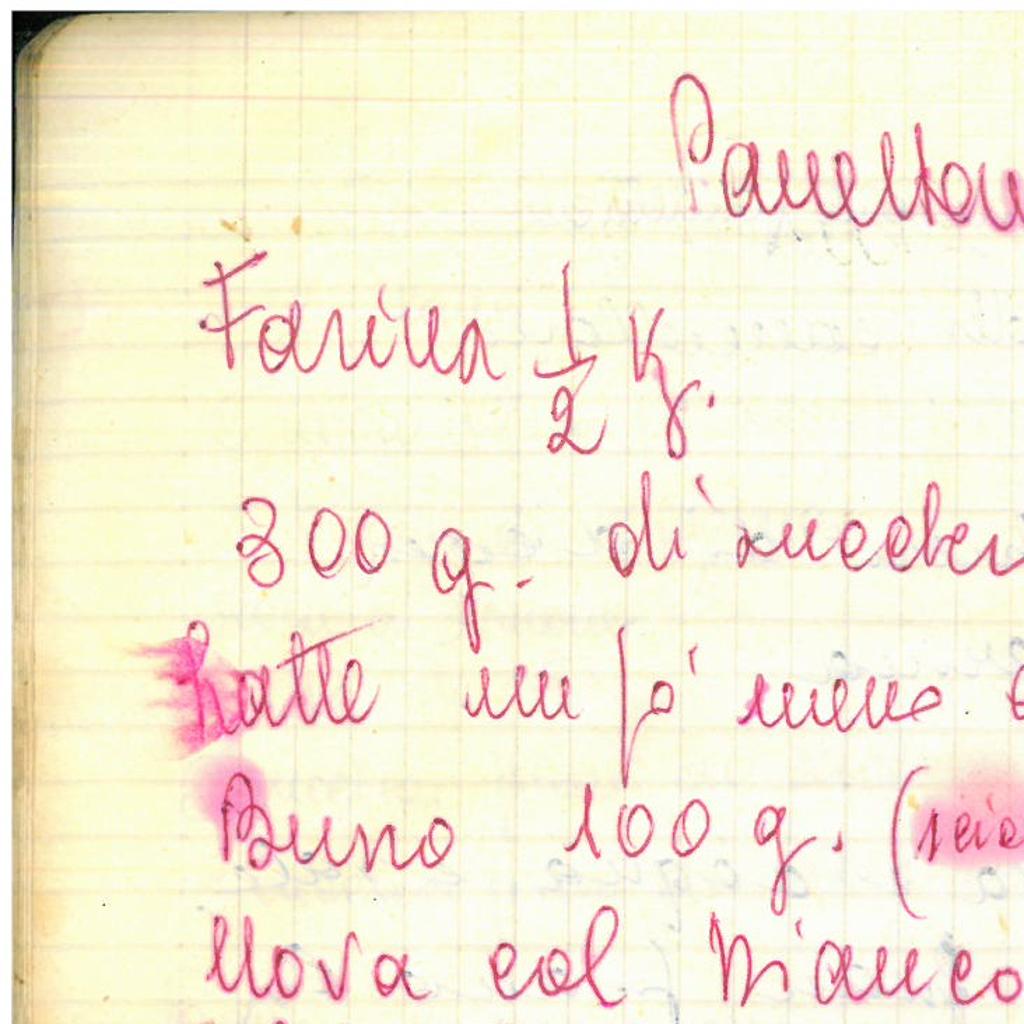 Panetton
Farina 1/2 Kg.
300 g. di zuccher
Latte un pò meno
Burro 100 g. (scio
Uova col bianco